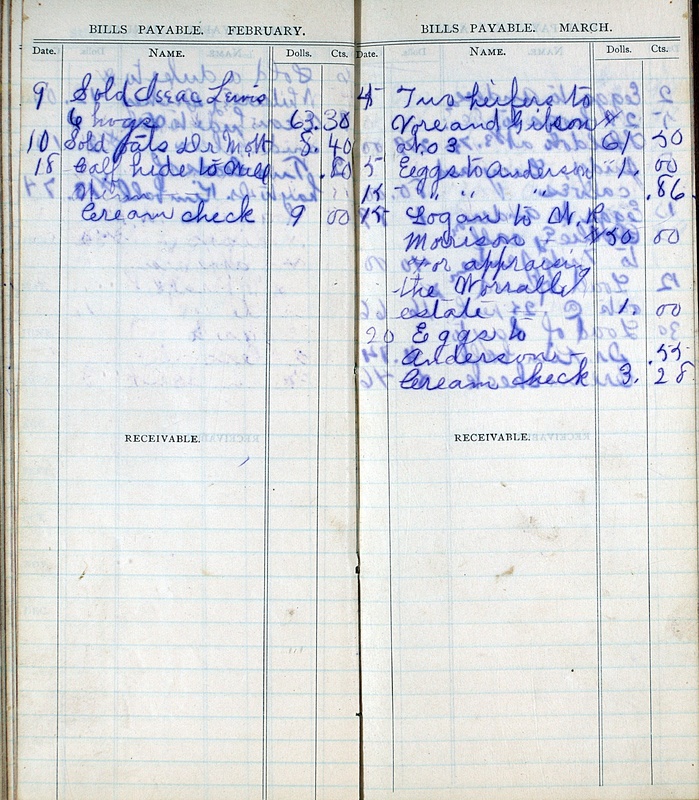 BILLS PAYABLE. FEBRUARY.
Date. NAME. Dolls. Cts.
9 Sold Isaac Lewis
6 hogs 63. 30
10 Sold fats Dr Mott 8. 40
18 Calf hide to Will .80
Cream check 9 00
RECEIVABLE.
BILLS PAYABLE. MARCH.
Date. NAME. Dolls. Cts.
4 Two heifers to
Vore and Gibson
at 03 61 50
5 Eggs to Anderson 1. 00
15 " " " .86
15 Logan to
Morrison $50 00
For appraising
the Worrall
estate 1. 00
20 Eggs to
Anderson .55
Cream check 3. 28
RECEIVABLE.